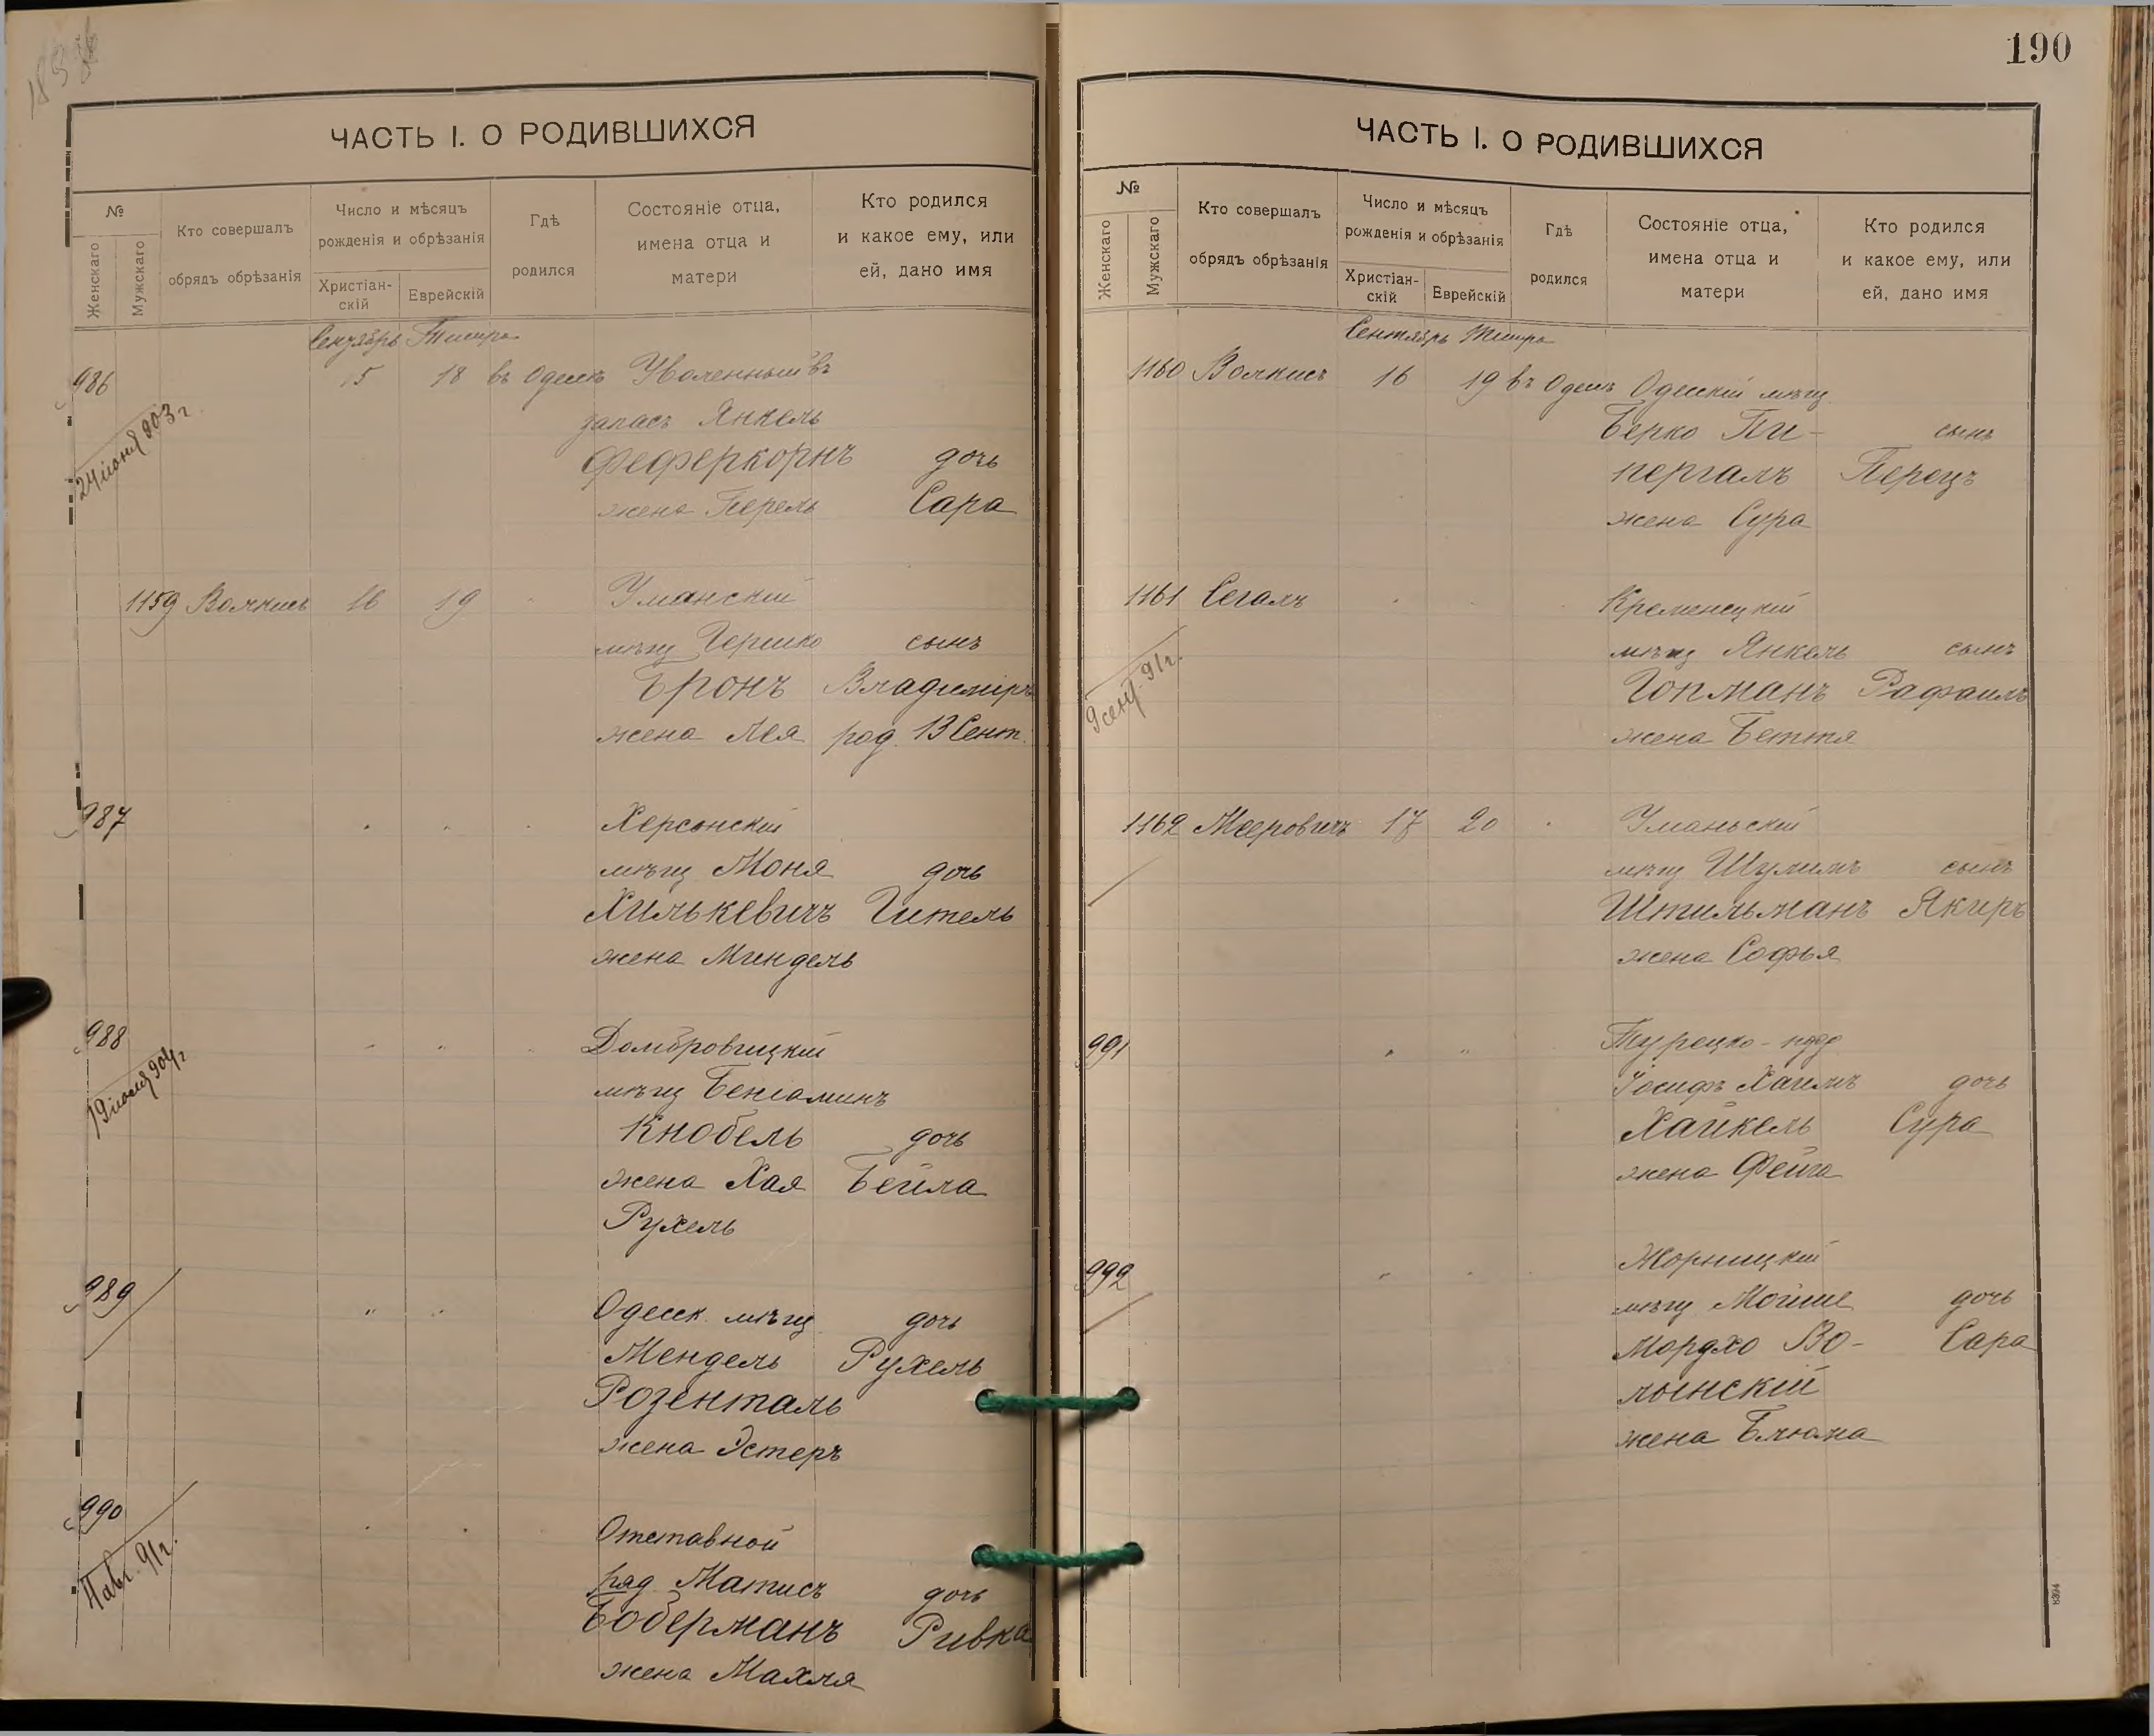 ЧАСТЬ I. О РОДИВШИХСЯ
№
Женскаго
Мужскаго
Кто совершалъ
обрядъ обрѣзанія
Число и мѣсяцъ
рожденія и обрѣзанія
Христіан-
скій
Еврейскій
Гдѣ
родился
Состояніе отца,
имена отца и
матери
Кто родился
и какое ему, или
ей, дано имя
Сентябрь Тишри
986 15 18 въ Одессѣ Уволенный въ
24 іюня 903 г.
запасъ Янкель
Феферкорнъ дочь
жена Перель Сара
1159 Волкисъ 16 19 Уманскій
мѣщ Гершко сынъ
Бронъ Владиміръ
жена Лея род. 13 Сент.
987 Херсонскій
мѣщ Моня дочь
Хилькевичъ Гитель
жена Миндель
988 Домбровицкій
19 іюля 904 г
мѣщ Беніаминъ
Кнобель дочь
жена Хая Бейла
Рухель
989 " " Одесск. мѣщ дочь
Мендель Рухель
Розенталь
жена Эстеръ
990 Отставной
11 авг. 91 г.
ряд Матисъ дочь
Боберманъ Ривка
жена Махля
190
ЧАСТЬ I. О РОДИВШИХСЯ
№
Женскаго
Мужскаго
Кто совершалъ
обрядъ обрѣзанія
Число и мѣсяцъ
рожденія и обрѣзанія
Христіан-
скій
Еврейскій
Гдѣ
родился
Состояніе отца,
имена отца и
матери
Кто родился
и какое ему, или
ей, дано имя
Сентябрь Тишри
1160 Волкисъ 16 19 въ Одесс Одесскій мѣщ
Берко Пи- сынъ
пергалъ Перецъ
жена Сура
1161 Сегалъ Кременецкій
9 сент. 91 г.
мѣщ Янкель сынъ
Гопманъ Рафаилъ
жена Беття
1162 Мееровичъ 17 20 Уманьскій
мѣщ Шулимъ сынъ
Штильманъ Якиръ
жена Софья
991 " " Турецко-подд
Іосифъ Хаимъ дочь
Хайкель Сура
жена Фейга
992 Жорнищкій
мѣщ Мойше дочь
Мордхо Во- Сара
лынскій
жена Блюма